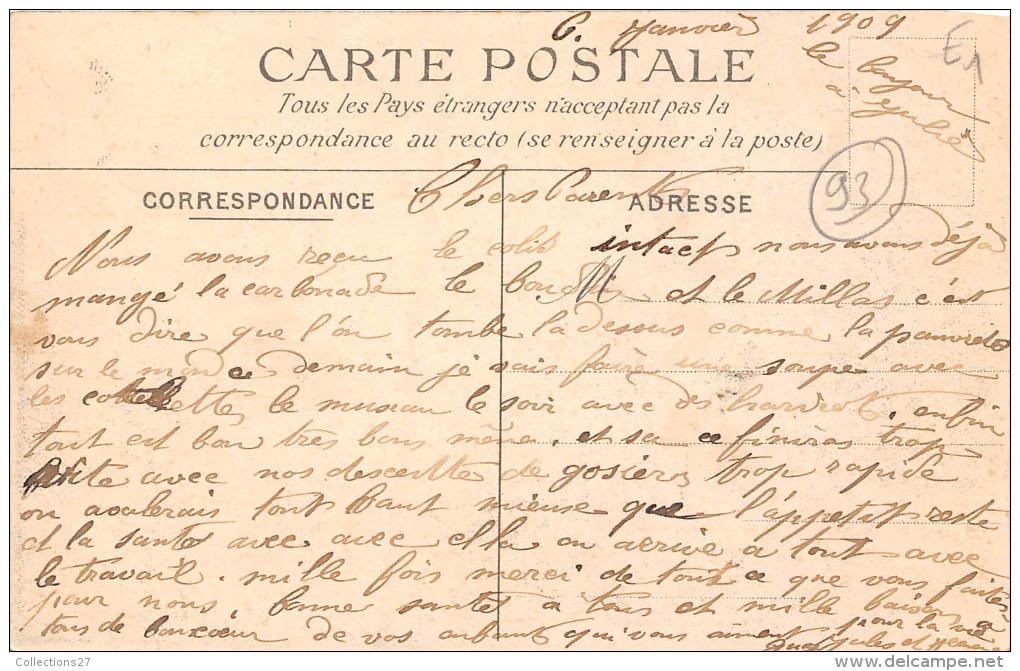 6. Janvier 1909
le bonjour
à Jules
E1
CARTE POSTALE
Tous les Pays étrangers n'acceptent pas la
correspondance au recto (se renseigner à la poste)
93
CORRESPONDANCE
ADRESSE
Chers Parents
Nous avons reçu le colis intact nous avons déjà
M
mangé la carbonade le boudin et le Millas c'est
vous dire que l'on tombe la dessus comme la pauvreté
sur le monde demain je vais faire une soupe avec
les cottelettes, le museau le soir avec des haricots, enfin
tout est bon très bon même, et sa ce finiras trop
vite avec nos descente de gosiers trop rapide
on avalerais tout Haut mieuse que l'appetit reste
et la santé avec avec ella on arrive a tout avec
le travail. mille fois merci de tout ce que vous faites
pour nous, bonne santé a tous et mille baisers
tous de bon cœur de vos enfants qui vous aiment pour la vie
Jules et
Collections27